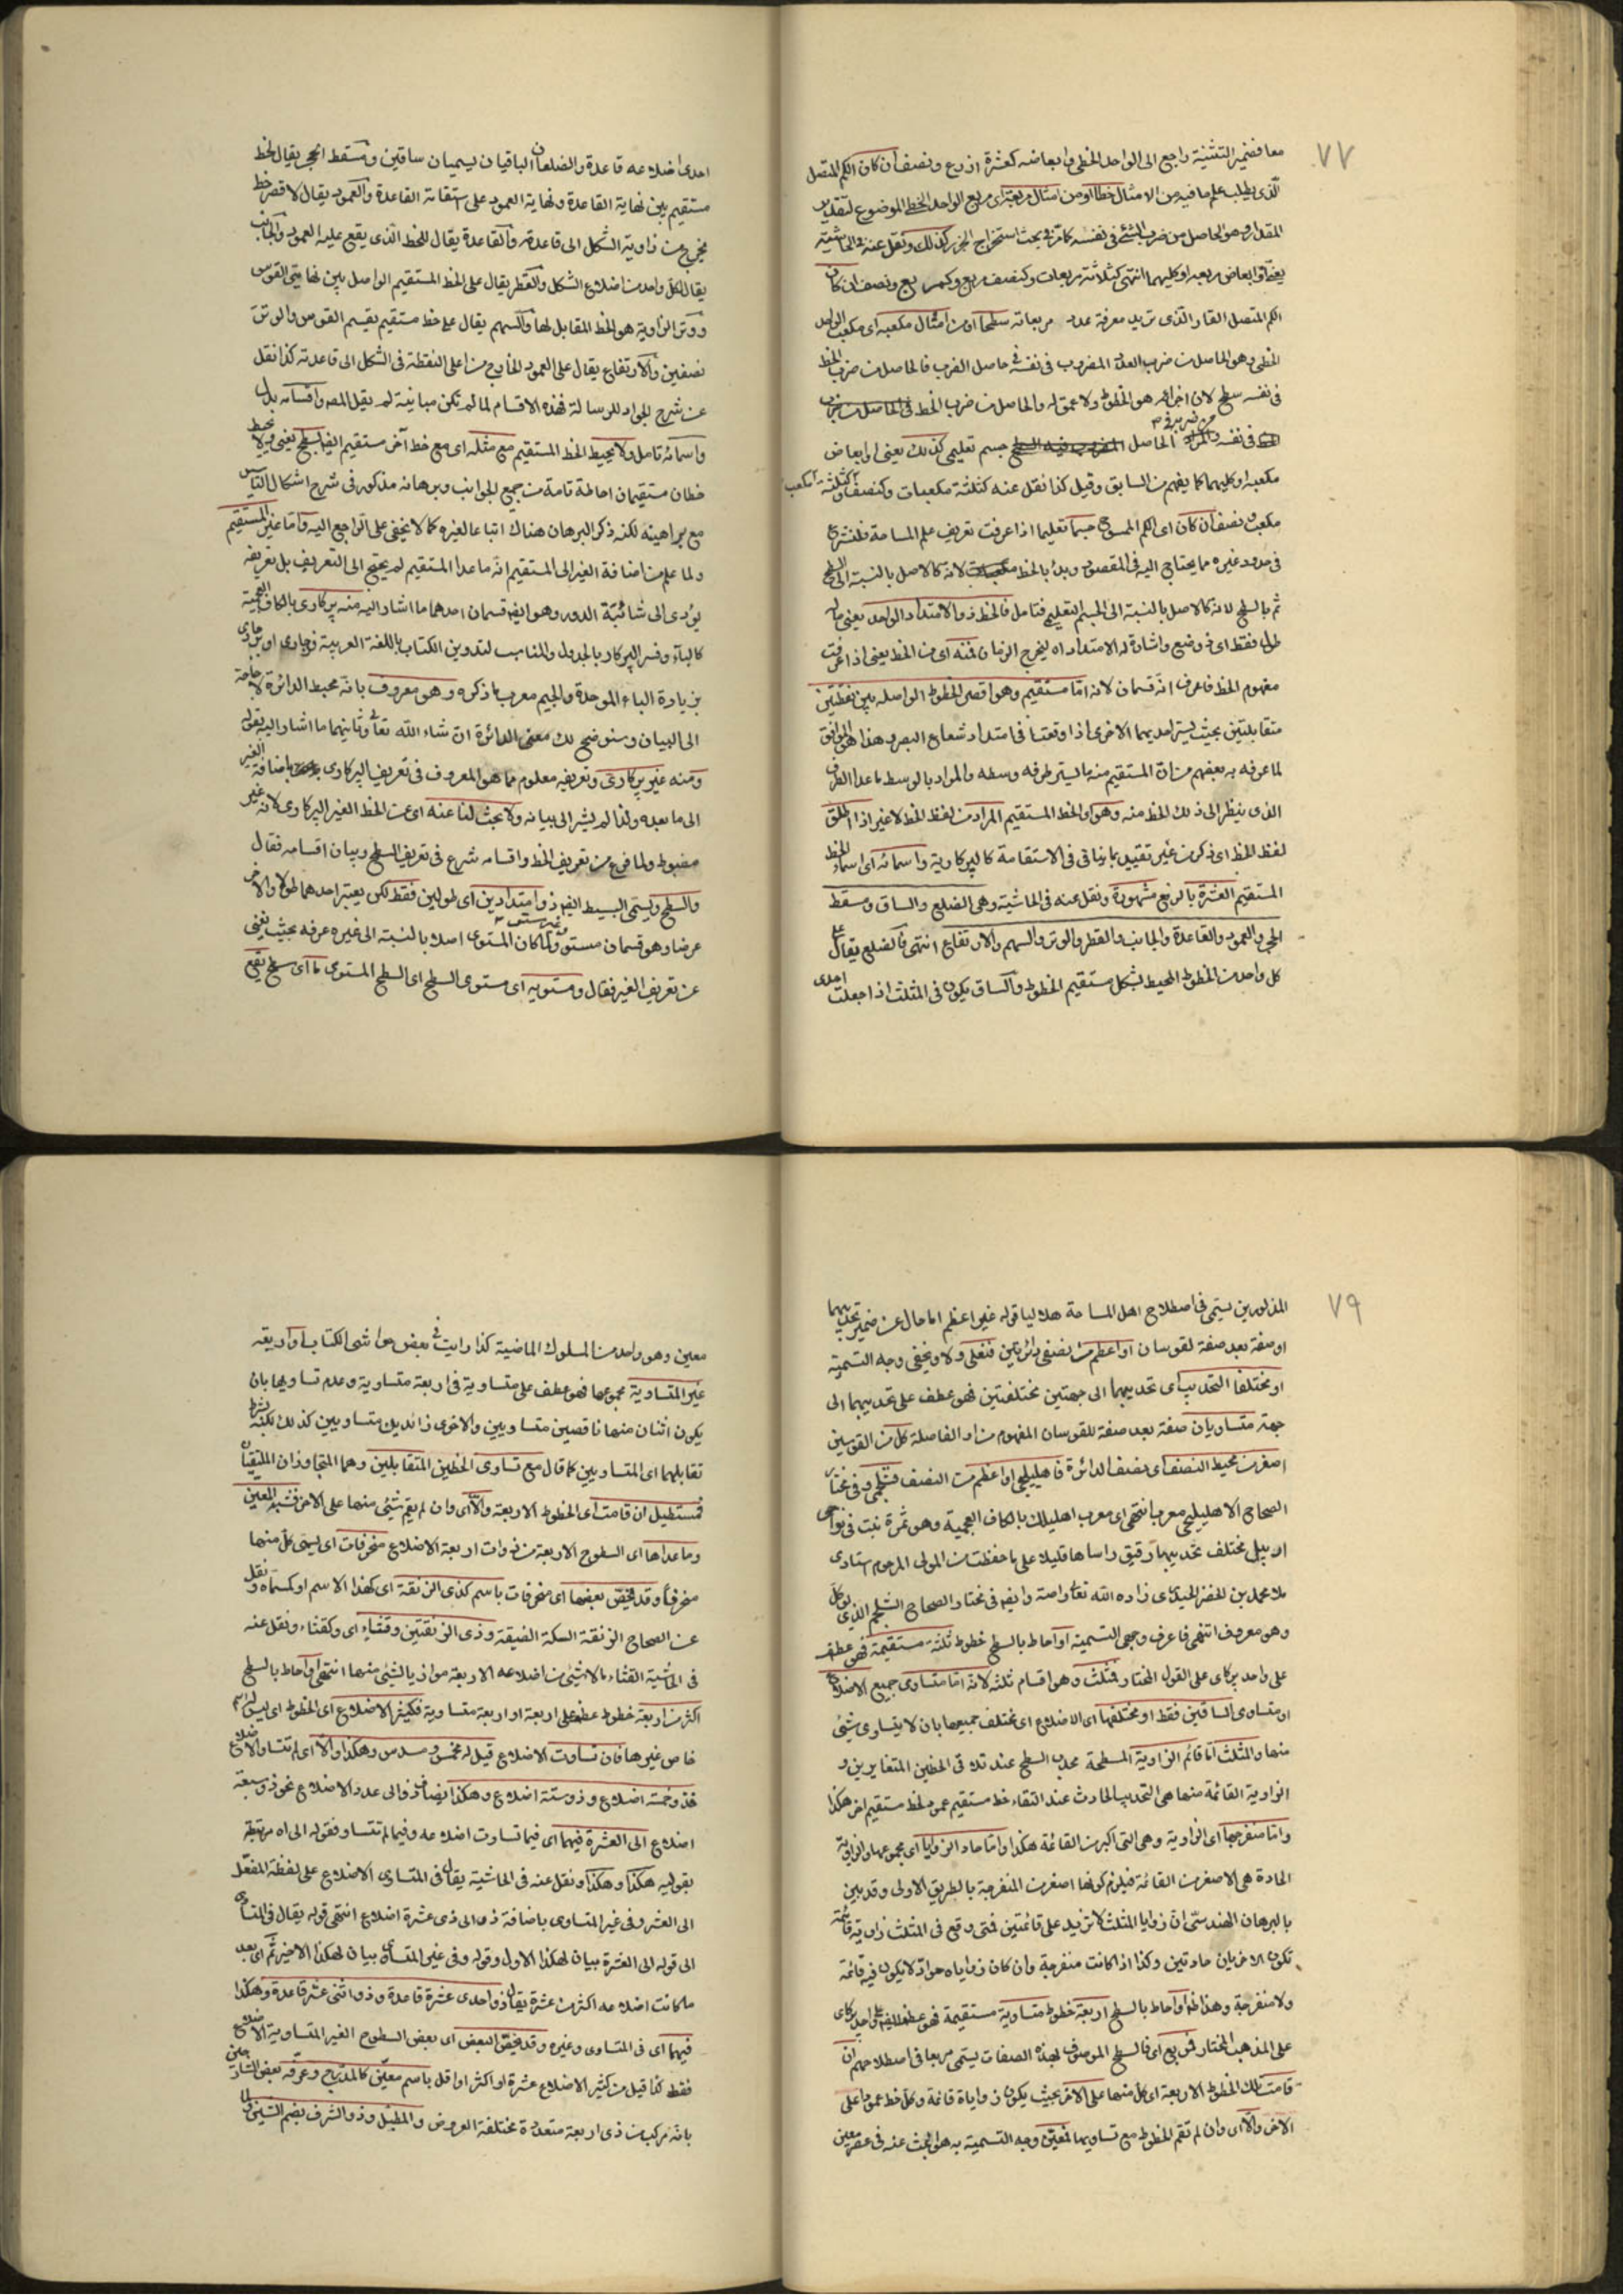 ٧٧
معا فضمير التثنية راجع الى الواحد الخطى وابعاضه كعشرة اذرع ونصف ان كان الكم المتصل
الذى يطلب علم ما فيه من الامثال خطا او من امثال مربعه اى مربع الواحد الخطى الموضوع لتقدير
المقدار وهو الحاصل من ضرب الشئ فى نفسه كما مر فى بحث استخراج الجذر كذلك ونقل عنه فى الحاشية
يعنى او ابعاض مربعه او كليهما انتهى كثلاثة مربعات وكنصف مربع وكمربع ونصف ان كان
الكم المتصل القار الذى تريد معرفة عدد مربعاته سطحا او من امثال مكعبه اى مكعب الواحد
الخطى وهو الحاصل من ضرب العدد المضروب فى نفسه فى حاصل الضرب فالحاصل من ضرب الخط
فى نفسه سطح لان اجزائه هو الخطوط ولا عمق له والحاصل من ضرب الخط فى الحاصل من ضرب
فى نفسه والمراد الحاصل جسم تعليمى كذلك يعنى او ابعاض
مكعبه او كليهما كما يفهم من السابق وقيل كذا نقل عنه كثلثة مكعبات وكنصف
مكعب ونصف ان كان اى الكم الممسوح جسما تعليما اذا عرفت تعريف علم المساحة فلنشرع
فى حدود غيره مما يحتاج اليه فى المقصود وبدأ بالخط لانه كالاصل بالنسبة الى السطح
ثم بالسطح لانه كالاصل بالنسبة الى الجسم التعليمى فتامل فالخط ذو الامتداد الواحد يعنى ماله
طول فقط اى ذو وضع واشارة له الامتداد اه ليخرج الزمان فمنه اى من الخط يعنى اذا عرفت
مفهوم الخط فاعرف انه قسمان لانه اما مستقيم وهو اقصر الخطوط الواصلة بين نقطتين
متقابلتين بحيث يستر احديهما الاخرى اذا وقعتا فى امتداد شعاع البصر وهذا هو الموافق
لما عرفه به بعضهم من ان المستقيم منه ما ليستر طرفه وسطه والمراد بالوسط ما عدا الطرف
الذى ينظر الى ذلك الخط منه وهو اى الخط المستقيم المراد من لفظ الخط لا غير اذا اطلق
لفظ الخط اى ذكر من غير تقييد بما ينافى فى الاستقامة كالپركارية واسمائه اى اسماء الخط
المستقيم العشرة بالرفع مشهورة ونقل عنه فى الحاشية وهى الضلع والساق ومسقط
الحجر والعمود والقاعدة والجانب والقطر والوتر والسهم والارتفاع انتهى فالضلع يقال على
كل واحد من الخطوط المحيط بشكل مستقيم الخطوط والساق يكون فى المثلث اذا جعلت احدى
احدى اضلاعه قاعدة والضلعان الباقيان يسميان ساقين ومسقط الحجر يقال لخط
مستقيم بين نهاية القاعدة ونهاية العمود على استقامة القاعدة والعمود يقال لاقصر خط
يخرج من زاوية الشكل الى قاعدته والقاعدة يقال للخط الذى يقع عليه العمود والجانب
يقال لكل واحد من اضلاع الشكل والقطر يقال على الخط المستقيم الواصل بين نهايتى القوس
ووتر الزاوية هو الخط المقابل لها والسهم يقال على خط مستقيم يقسم القوس والوتر
نصفين والارتفاع يقال على العمود الخارج من اعلى النقطة فى الشكل الى قاعدته كذا نقل
عن شرح الجواد للرسالة فهذه الاقسام لما لم تكن مباينة لم يقل المص واقسامه بدل
واسمائه تامل ولا يحيط الخط المستقيم مع مثله اى مع خط آخر مستقيم ايضا بسطح يعنى ولا يحيط
خطان مستقيمان احاطة تامة من جميع الجوانب وبرهانه مذكور فى شرح اشكال التاسيس
مع براهينه لكنه ذكر البرهان هناك اتباعا لغيره كما لا يخفى على الراجع اليه واما غير المستقيم
ولما علم من اضافة الغير الى المستقيم انه ما عدا المستقيم لم يحتج الى التعريف بل تعريفه
يؤدى الى شائبة الدور وهو ايضا قسمان احدهما ما اشار اليه منه پركارى بالكاف العجمية
كالباء وفسر الپركار بالجدول والمناسب لتدوين الكتاب باللغة العربية
بزيادة الباء الموحدة والجيم معرب ما ذكره وهو معروف بانه محيط الدائرة لا حاجة
الى البيان وسنوضح لك معنى الدائرة ان شاء الله تعالى وثانيهما ما اشار اليه بقوله
ومنه غير پركارى وتعريفه معلوم مما هو المعروف فى تعريف الپركارى باضافة الغير
الى ما بعده ولذا لم يشر الى بيانه ولا بحث لنا عنه اى عن الخط الغير الپركارى لانه غير
مضبوط ولما فرغ من تعريف الخط واقسامه شرع فى تعريف السطح وبيان اقسامه فقال
والسطح ويسمى البسيط ايضا ذو امتدادين اى طولين فقط لكن يعتبر احدهما طولا والآخر
عرضا وهو قسمان مستو وغير مستو ولما كان المستوى اصلا بالنسبة الى غيره عرفه بحيث يغنى
عن تعريف الغير فقال ومستويه اى مستوى السطح اى السطح المستوى ما اى سطح يقع
٧٩
المذكورين يسمى فى اصطلاح اهل المساحة هلاليا قوله غير اعظم اما حال عن ضمير تحديبهما
او صفة بعد صفة لقوسان او اعظم من نصفى دائرتين فنعلى ولا يخفى وجه التسمية
او مختلفا التحديب اى تحديبهما الى جهتين مختلفتين فهو عطف على تحديبهما الى
جهة متساويان صفة بعد صفة للقوسان المفهوم من او الفاصلة كل من القوسين
اصغر من محيط النصف اى نصف الدائرة فاهليلجى او اعظم من النصف فشلجمى وفى مختار
الصحاح الاهليلجى معرب انتهى اى معرب اهليلك بالكاف العجمية وهو ثمرة نبت فى نواحى
اردبيل مختلف تحديبهما رقيق راساها قليلا على ما حفظت من المولى المرحوم استادى
ملا محمد بن الخضر الحيدرى زاده الله تعالى راحته وايضا فى مختار الصحاح الشلجم الذى يؤكل
وهو معروف انتهى فاعرف وجهى التسمية او احاط بالسطح خطوط ثلثة مستقيمة فهو عطف
على واحد پركارى على القول المختار فمثلث وهو اقسام ثلثة لانه اما متساوى جميع الاضلاع
او متساوى الساقين فقط او مختلفها اى الاضلاع اى مختلف جميعها بان لا يتساوى شئ
منها والمثلث اما قائم الزاوية المسطحة محدب السطح عند تلاقى الخطين المتغايرين و
الزاوية القائمة منها هى التحديب الحادث عند التقاء خط مستقيم عمود لخط مستقيم اخر هكذا
واما منفرجها اى الزاوية وهى التى اكبر من القائمة هكذا واما حاد الزوايا اى مجموعها والزاوية
الحادة هى الاصغر من القائمة فيلزم كونها اصغر من المنفرجة بالطريق الاولى وقد بين
بالبرهان الهندسى ان زوايا المثلث لا تزيد على قائمتين فمتى وقع فى المثلث زاوية قائمة
تكون الاخريان حادتين وكذا اذا كانت منفرجة وان كان زواياه حواد لا يكون فيه قائمة
ولا منفرجة وهذا ظاهر او احاط بالسطح اربعة خطوط متساوية مستقيمة فهو عطف ايضا على واحد پركارى
على المذهب المختار فمربع اى فالسطح الموصوف بهذه الصفات يسمى مربعا فى اصطلاحهم ان
قامت تلك الخطوط الاربعة اى كل منها على الآخر بحيث يكون زواياه قائمة وكل خط عمودا على
الآخر والا اى وان لم تقم الخطوط مع تساويها فمعين وجه التسمية به هو البحث عنه فى عصر معين
معين وهو واحد من الملوك الماضية كذا رايت فى بعض حواشى الكتاب او اربعة
غير المتساوية مجموعها فهو عطف على متساوية فى اربعة متساوية وعدم تساويها بان
يكون اثنان منها ناقصين متساويين والاخرى زائديك متساويين كذلك لكنه بشرط
تقابلهما اى المتساويين كما قال مع تساوى الخطين المتقابلين وهما المتجاوزان الملتقيان
فمستطيل ان قامت اى الخطوط الاربعة والا اى وان لم يقم شئ منها على الاخر فشبه المعين
وما عداها اى السطوح الاربعة من ذوات اربعة الاضلاع منحرفات اى يسمى كل منها
منحرفا وقد يخص بعضها اى منحرفات باسم كذى الزنقة اى كهذا الاسم او كمسماه ونقل
عن الصحاح الزنقة السكة الضيقة وذى الزنقتين وقثاء اى وكقثاء ونقل عنه
فى الحاشية القثاء ما لا شئ من اضلاعه الاربعة موازيا لشئ منها انتهى او احاط بالسطح
اكثر من اربعة خطوط عطف على اربعة او اربعة متساوية فكثير الاضلاع اى الخطوط اى ليس له اسم
خاص غيرها فان تساوت الاضلاع قيل له مخمس ومسدس وهكذا والا اى لم تتساو الاضلاع
فذو خمسة اضلاع وذو ستة اضلاع وهكذا يضاف ذو الى عدد الاضلاع نحو ذو سبعة
اضلاع الى العشرة فيهما اى فيما تساوت اضلاعه وفيما لم تتساو فقوله الى اه مرتبط
بقوليه هكذا وهكذا ونقل عنه فى الحاشية يقال فى المتساوى الاضلاع على لفظة المفعل
الى العشر وفى غير المتساوى باضافة ذى الى ذى عشرة اضلاع انتهى قوله يقال فى المتساوى
الى قوله الى العشرة بيان لهكذا الاول وقوله وفى غير المتساوى بيان لهكذا الاخير ثم اى بعد
ما كانت اضلاعه اكثر من عشرة يقال ذو احدى عشرة قاعدة وذو اثنى عشر قاعدة وهكذا
فيهما اى فى المتساوى وغيره وقد يخص البعض اى بعض السطوح الغير المتساوية الاضلاع
فقط كذا قيل من كثير الاضلاع عشرة او اكثر او اقل باسم معين كالمدرج وعرفه بعض الشارحين
بانه مركب من ذى اربعة متعددة مختلفة العروض والمطبل وذو الشرف بضم الشين